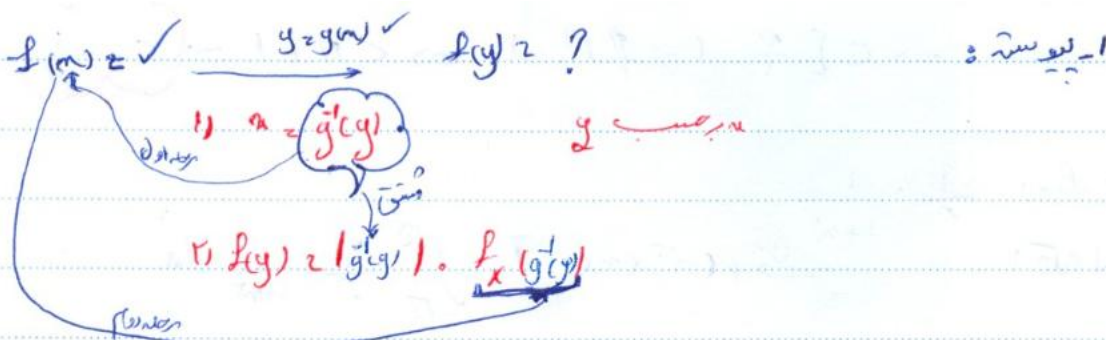 ۱- پیوسته :
f(x) = ✓ y = g(x) ✓ f(y) = ?
۱) x = g⁻¹(y) x برحسب y
مرحله اول
مشتق
۲) f(y) = |g⁻¹(y)| . f_x (g⁻¹(y))
مرحله دوم